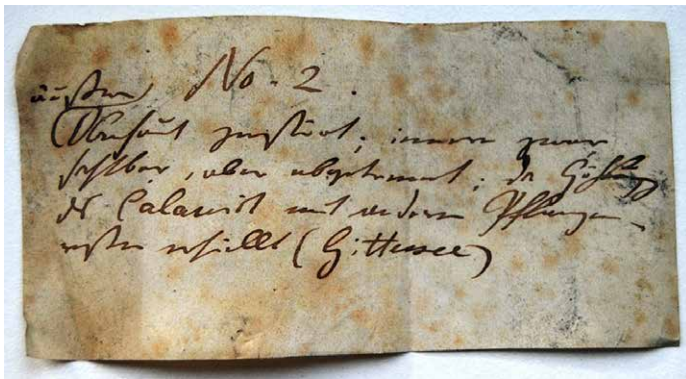 No. 2.
äußere
Oberhaut zerstört; innere zwar
sichtbar, aber abgetrennt; die Höhlung
des Calamit mit anderen Pflanzen-
resten erfüllt (Gittersee)